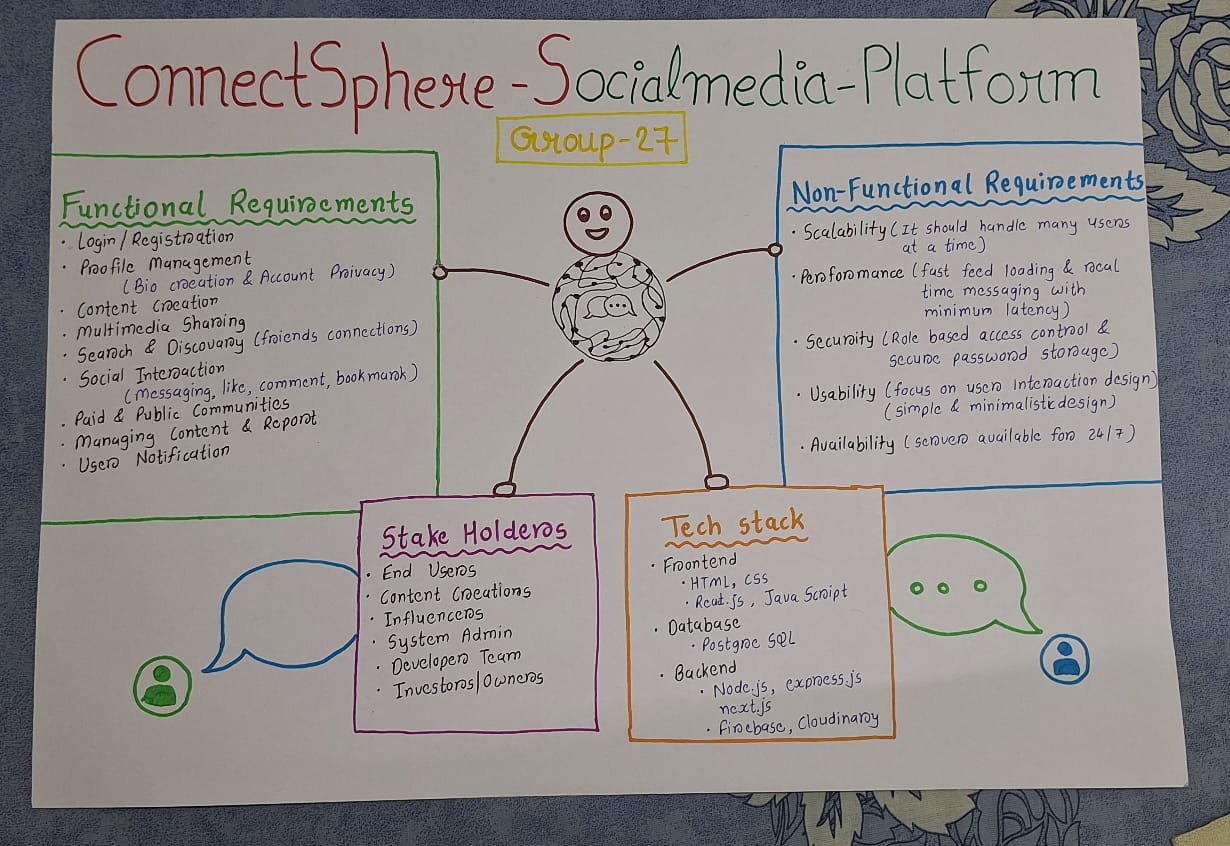 ConnectSphere - Socialmedia - Platform
Group-27
Functional Requirements
· Login / Registration
· Profile Management
(Bio creation & Account Privacy)
· Content Creation
· Multimedia Sharing
· Search & Discovary (friends connections)
· Social Interaction
(Messaging, like, comment, bookmark)
· Paid & Public Communities
· Managing Content & Report
· User Notification
Non-Functional Requirements
· Scalability (It should handle many users
at a time)
· Performance (fast feed loading & real
time messaging with
minimum latency)
· Security (Role based access control &
secure password storage)
· Usability (focus on user Interaction design)
(simple & minimalistic design)
· Availability (server available for 24/7)
Stake Holders
· End Users
· Content Creations
· Influencers
· System Admin
· Developer Team
· Investors/Owners
Tech stack
· Frontend
· HTML, CSS
· React.js, Java Script
· Database
· Postgre SQL
· Backend
· Node.js, express.js
next.js
· firebase, Cloudinary